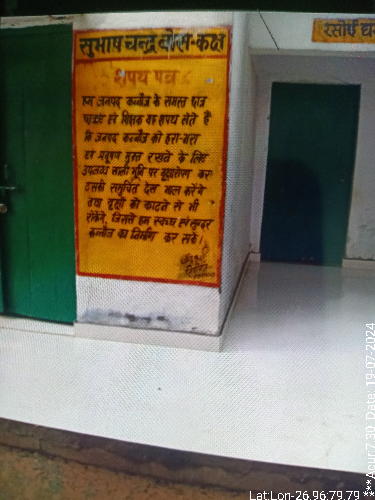 सुभाष चन्द्र बोस-कक्ष
शपथ पत्र
हम जनपद कन्नौज के समस्त छात्र
छात्राएं एवं शिक्षक यह शपथ लेते हैं
कि जनपद कन्नौज को हरा-भरा
एवं प्रदूषण मुक्त रखने के लिए
उपलब्ध खाली भूमि पर वृक्षारोपण कर
उसकी समुचित देख भाल करेंगे
तथा वृक्षों को काटने से भी
रोकेंगे, जिससे हम स्वच्छ एवं सुन्दर
कन्नौज का निर्माण कर सकें।
रसोई घर
Lat:Lon-26.96:79.79
Date: 19-07-2024